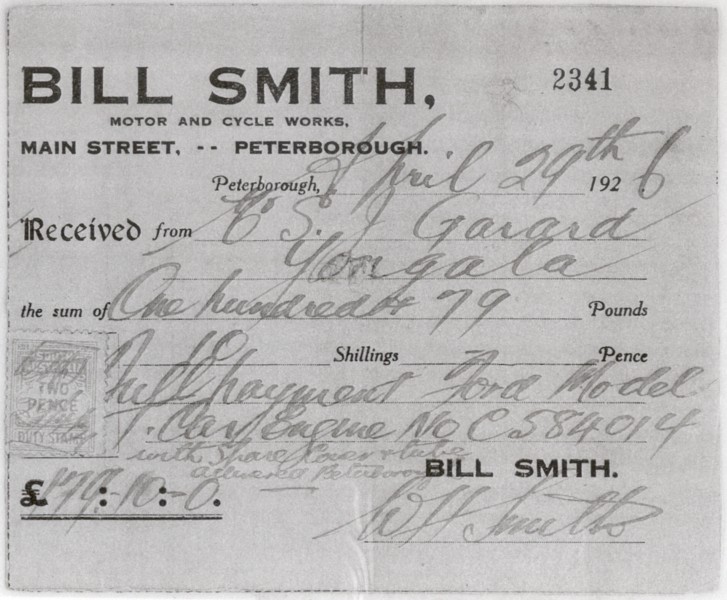 BILL SMITH,
2341
MOTOR AND CYCLE WORKS,
MAIN STREET, -- PETERBOROUGH.
Peterborough, April 29th 1926
Received from S. J Garard
Yongala
the sum of One hundred & 79 Pounds
10 Shillings Pence
full payment Ford Model
T. Car Engine No C584014
with Spare Cover & tube
delivered Peterborough
TWO
PENCE
DUTY STAMP
BILL SMITH.
£179:10:0.
W H Smith